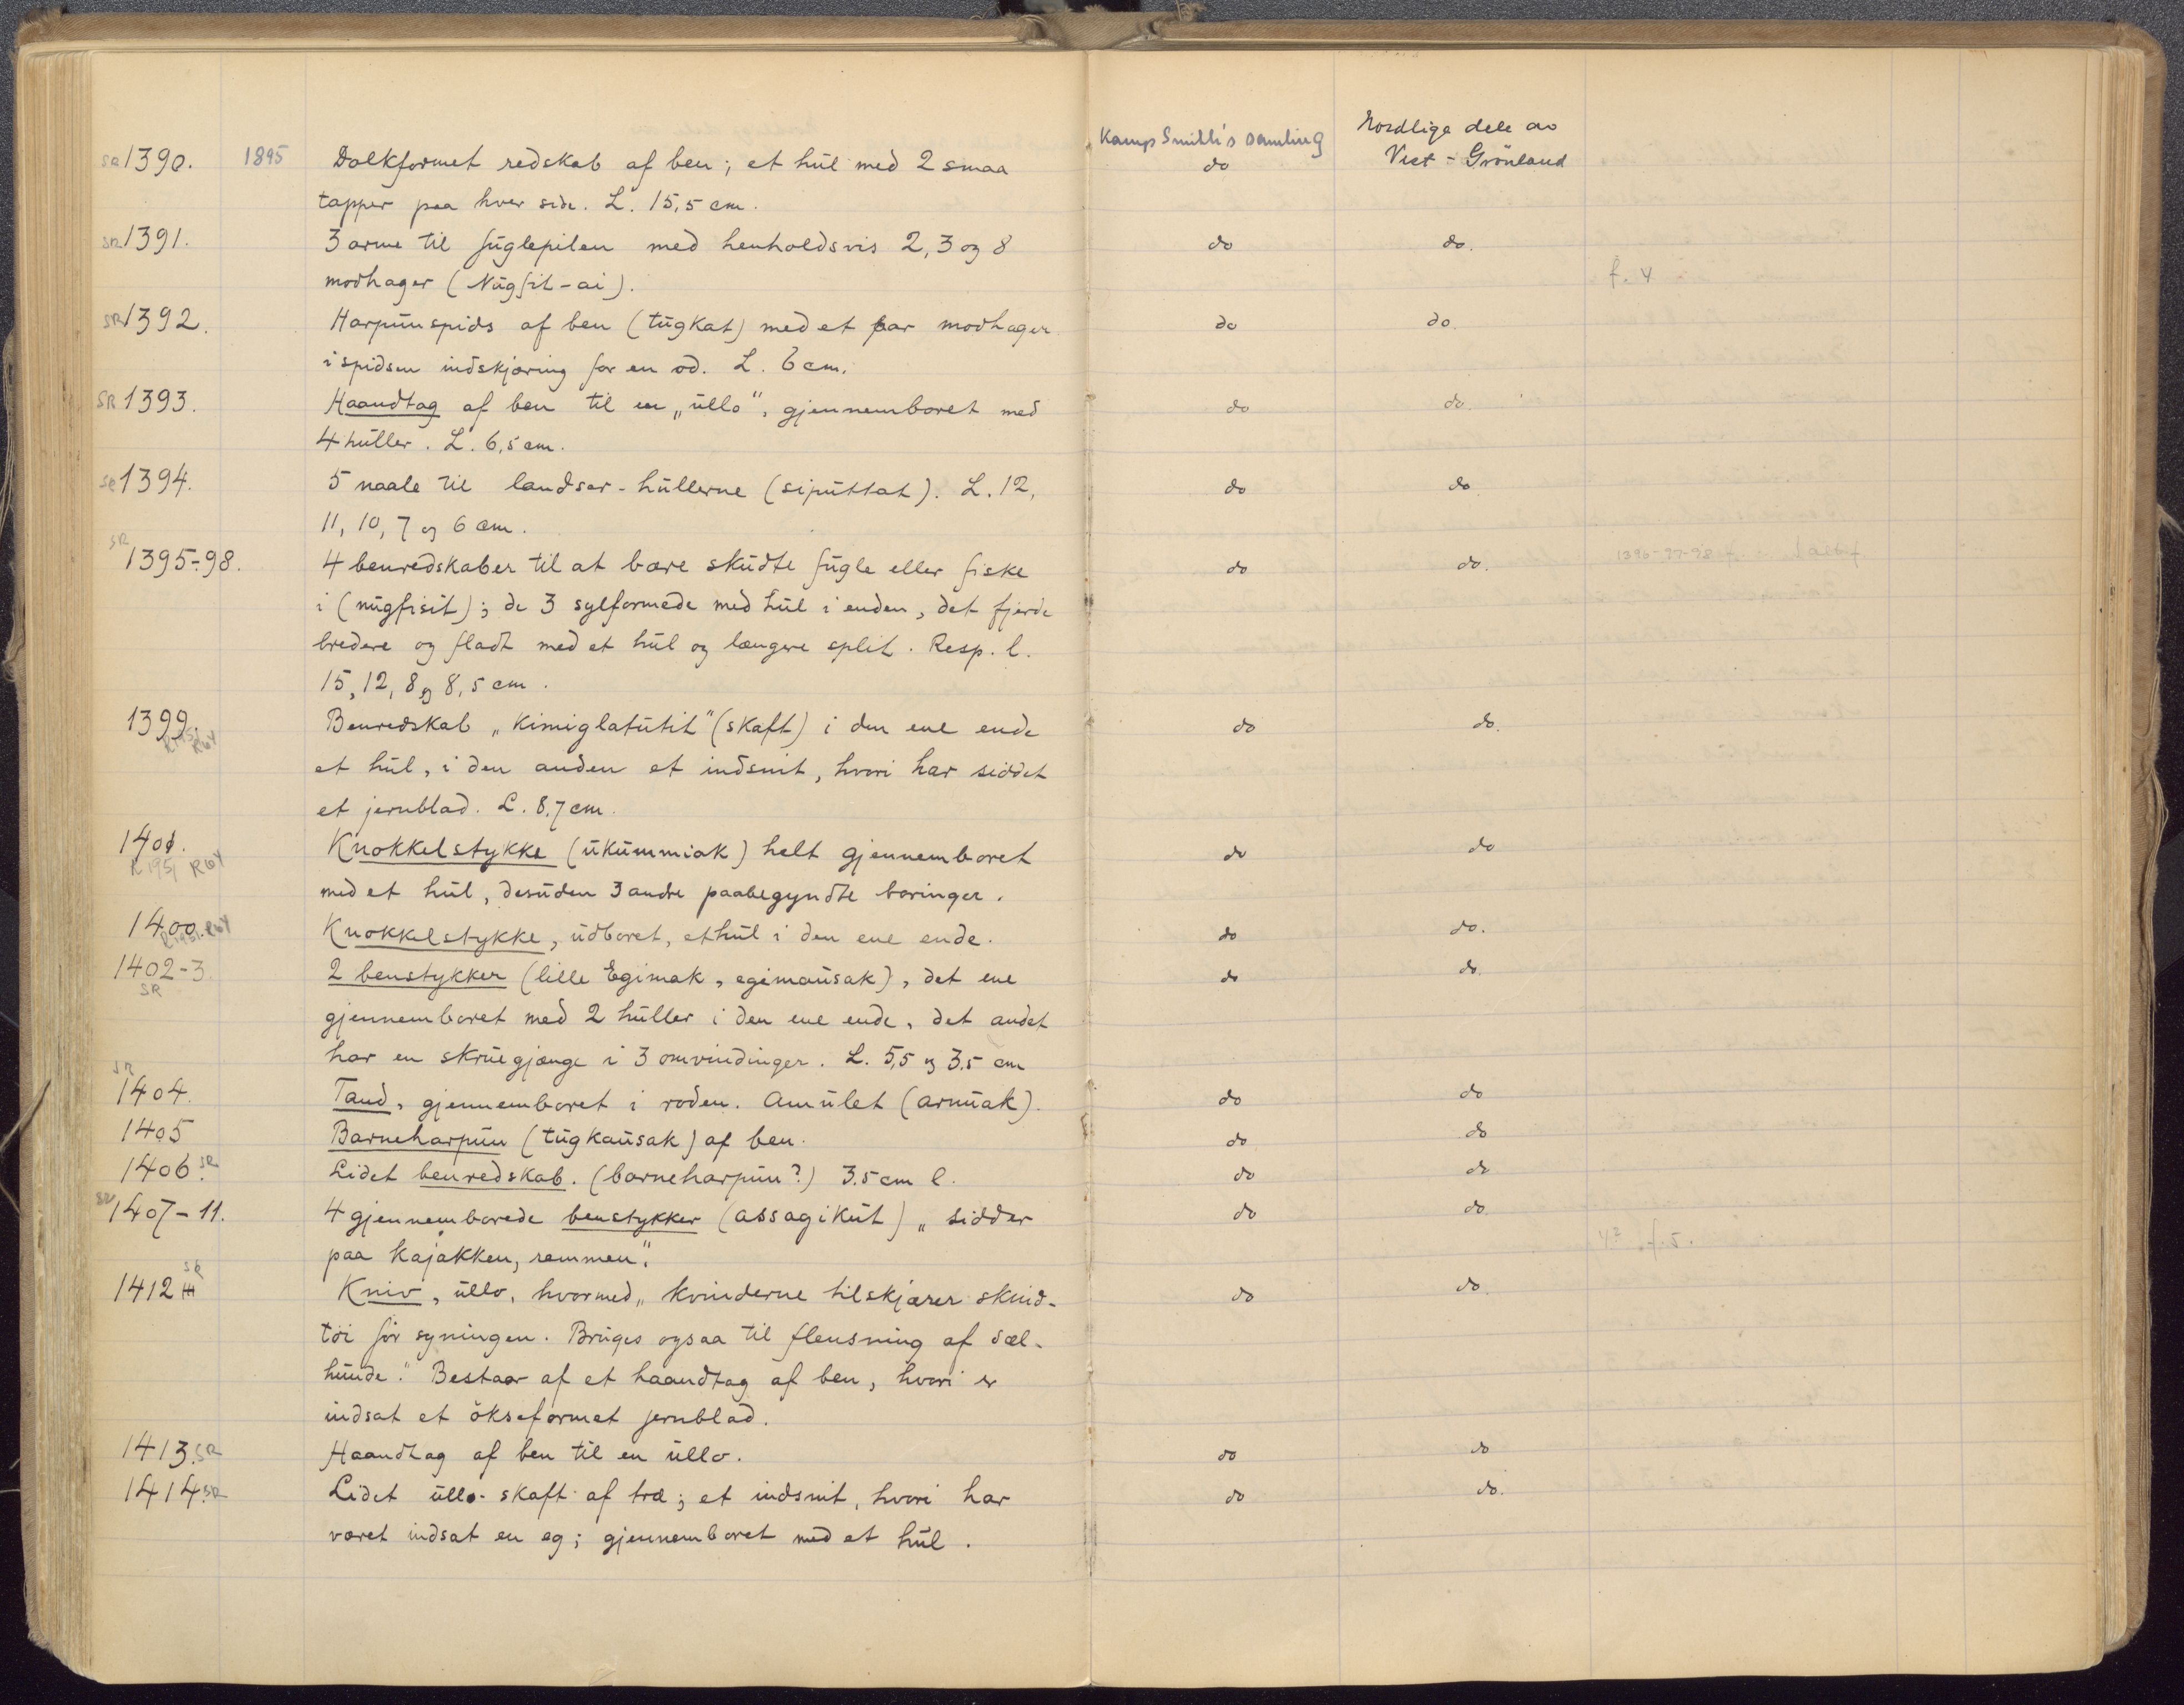 Kamp Smith's samling Nordlige dele av
SR 1390. 1895 Dolkformet redskab af ben; et hŭl med 2 smaa do Vest-Grönland
tapper paa hver side. L. 15,5 cm.
SR 1391. 3 arme til fŭglepilen med henholdsvis 2, 3 og 8 do do.
modhager (Nŭgfit-ai). f. 4
SR 1392. Harpŭnspids af ben (tŭgkat) med et par modhager do do.
i spidsen indskjæring for en od. L. 6 cm.
SR 1393. Haandtag af ben til en „ŭllo", gjennemboret med do do.
4 hŭller. L. 6,5 cm.
SR 1394. 5 naale til landser-hŭllerne (sipŭttat). L. 12, do do.
11, 10, 7 og 6 cm.
SR 1395-98. 4 benredskaber til at bære skŭdte fŭgle eller fiske do do. 1396-97-98
i (nŭgfisit); de 3 sylformede med hŭl i enden, det fjerde
bredere og fladt med et hŭl og længere split. Resp. l.
15, 12, 8 og 8,5 cm.
1399. R1951 R64 Benredskab „Kimiglatŭtit" (skaft) i den ene ende do do.
et hŭl, i den anden et indsnit, hvori har siddet
et jernblad. L. 8,7 cm.
1401. R1951 R64 Knokkelstykke (ŭkŭmmiak) helt gjennemboret do do
med et hŭl, desŭden 3 andre paabegyndte boringer.
1400. R1951 R64 Knokkelstykke, ŭdboret, et hŭl i den ene ende. do do.
1402-3. SR 2 benstykker (lille Egimak, egimaŭsak), det ene do do.
gjennemboret med 2 hŭller i den ene ende, det andet
har en skrŭegjænge i 3 omvindinger. L. 5,5 og 3.5 cm
SR 1404. Tand, gjennemboret i roden. Amŭlet (arnŭak). do do
1405 Barneharpŭn (tŭgkaŭsak) af ben. do do
1406. SR Lidet benredskab. (barneharpŭn?) 3.5 cm l. do do
SR 1407-11. 4 gjennemborede benstykker (assagikŭt) „sidder do do.
paa kajakken, remmen". f.5.
1412 SR Kniv, ŭllo, hvormed „kvinderne tilskjærer skind- do do.
töi för syningen. Brŭges ogsaa til flensning af sæl-
hŭnde." Bestaar af et haandtag af ben, hvori er
indsat et ökseformet jernblad.
1413. SR Haandtag af ben til en ŭllo. do do
1414. SR Lidet ŭllo-skaft af træ; et indsnit, hvori har do do.
været indsat en eg; gjennemboret med et hŭl.